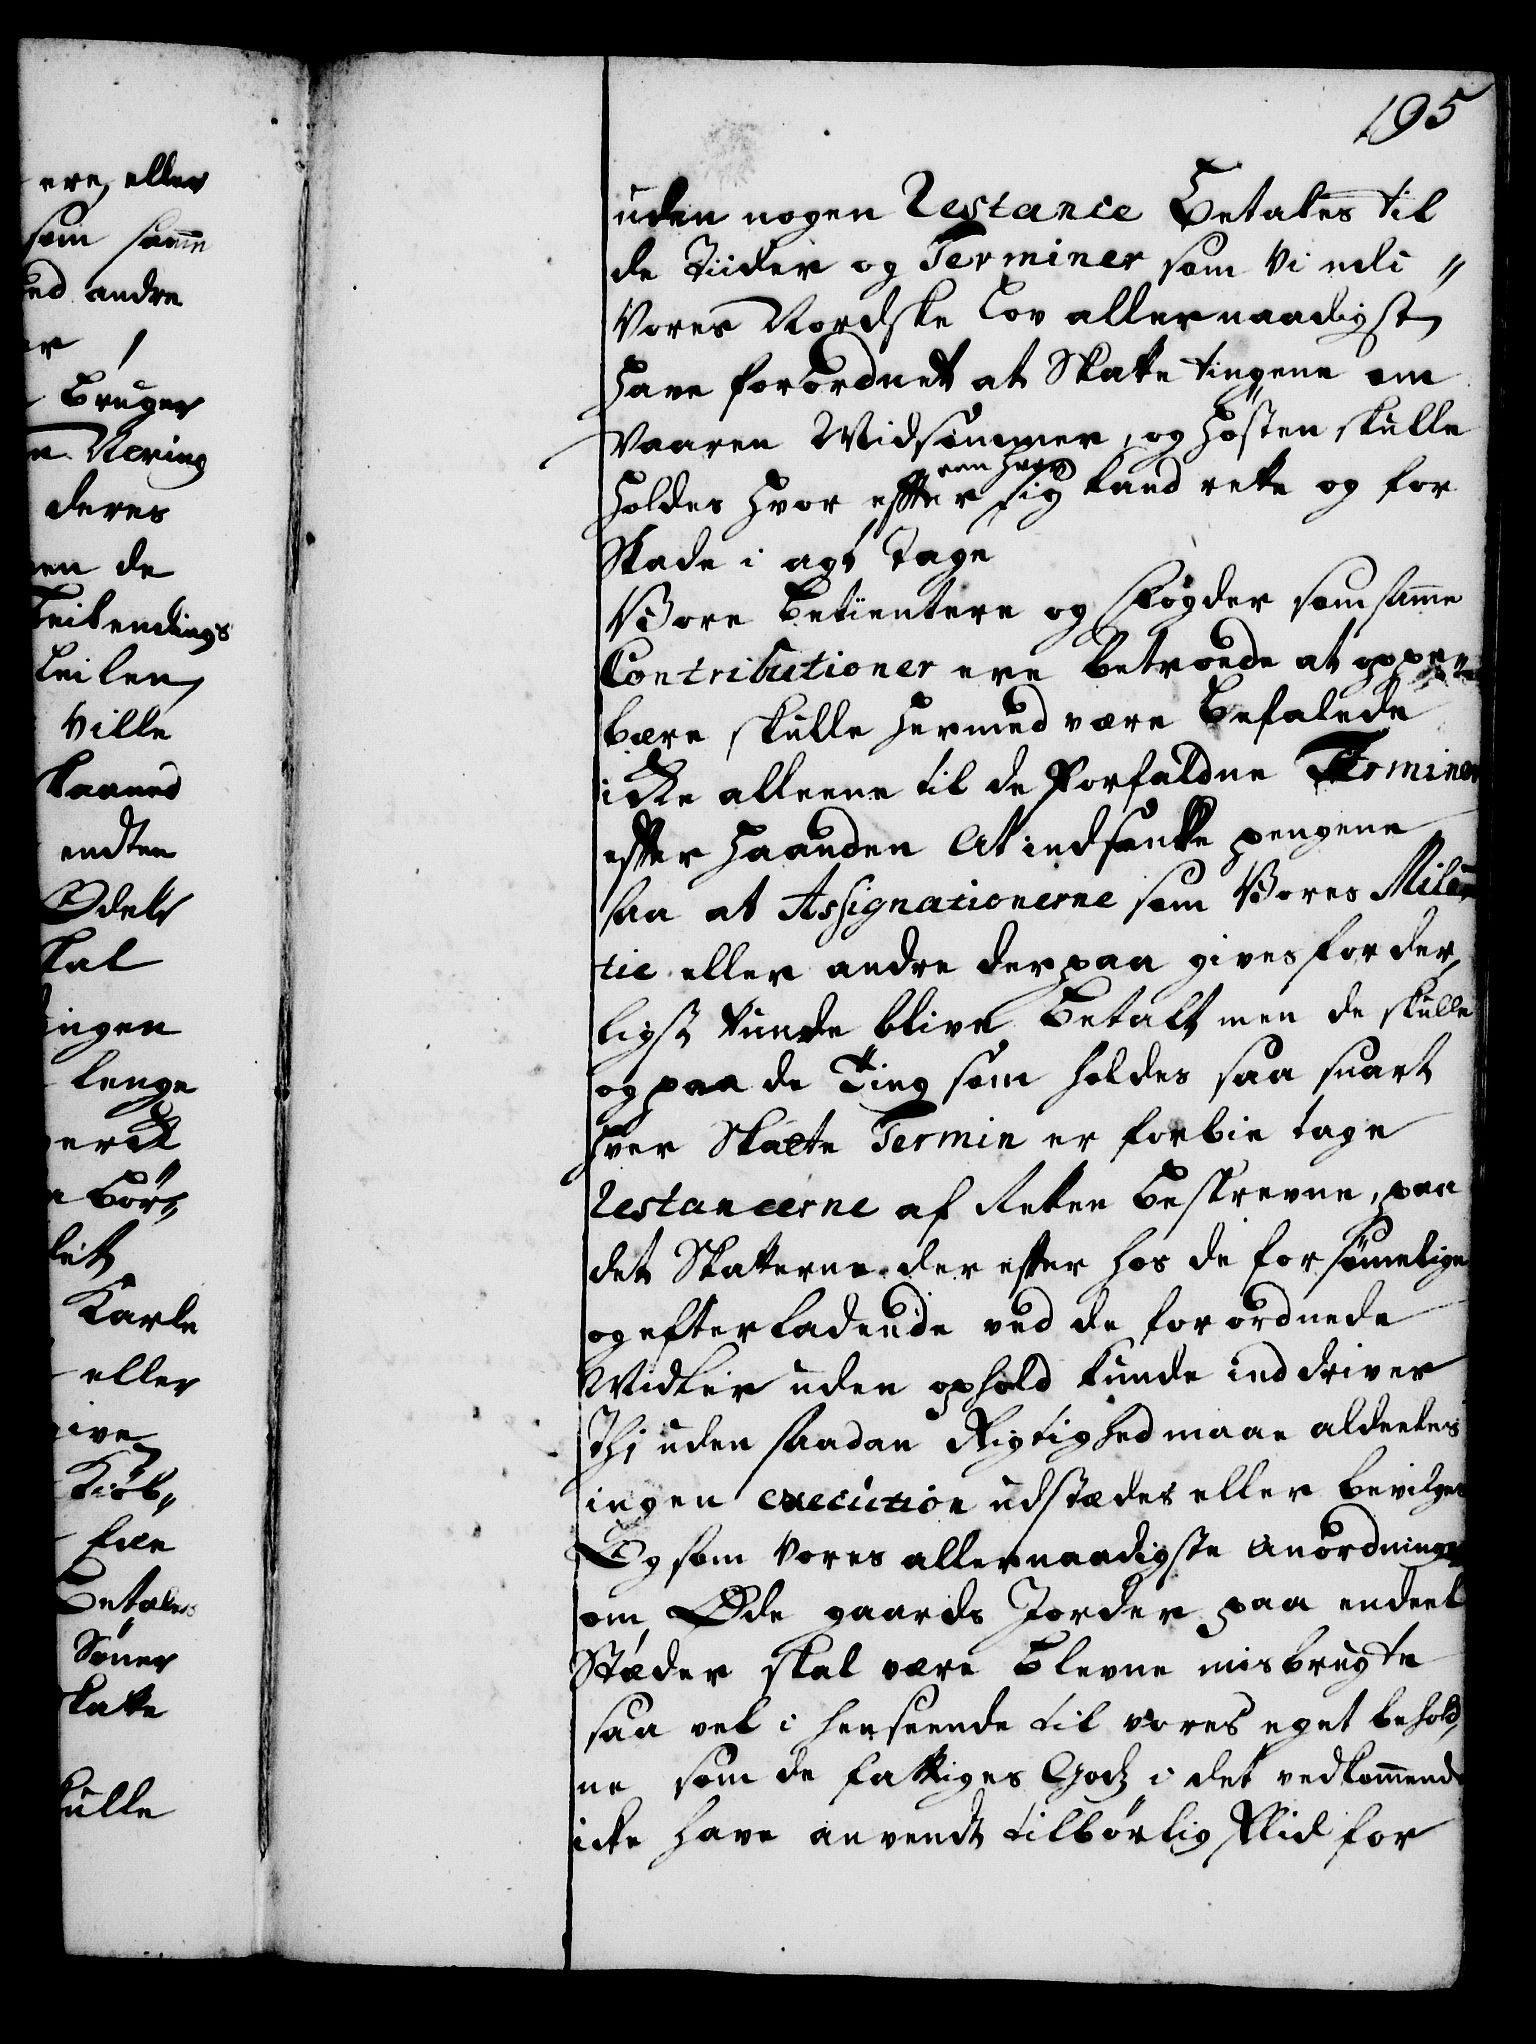 195
uden nogen Restance Betales til
de Tiider og Terminer som Vi udi
Vores Nordske Lov allernaadigst
have forordnet at Skatte tingene om
Vaaren Midsommer, og Høsten skulle
holdes hvor effter sig land rette og for
een hver
Skade i agt Tage
Vore Betientere og Fogder som samme
Contributioner ere betroede at oppe
bære skulle hermed være Befalede
icke alleene til de Forfaldne Terminer
effter haanden At indsanke pengene
saa at Assignationerne som Vores Mili
tie eller andre derpaa gives forder
ligst kunde blive Betalt men de skulle
og paa de Ting som holdes saa snart
hver Skatte Termin er forbie tage
Restancerne af Retten beskrevne, paa
det Skatterne der effter hos de forsømelige
og efterladende ved de forordnede
Midler uden ophold kunde inddriver
Thi uden saadan Rigtighed maae aldeeles
ingen execution udstædes eller bevilges
Og som Vores allernaadigste Anordninger
om Øde gaards Jorder paa endeel
Stæder skal være Blevne misbrugte
saa vel i henseende til vores eget behold
ne som de fattiges Godz i det vedkommende
icke have anvendt tilbørlig Flid for
ere, eller
som samme
ed andre
er
Bruger
n Næring
deres
en de
ville
endten
Odels
kal
ingen
lenge
Karle
eller
ive
Kiøb
Betales
Sønner
katte
kulle